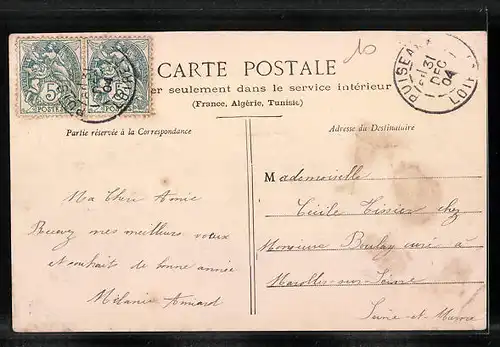 CARTE POSTALE
er seulement dans le service intérieur
(France, Algérie, Tunisie)
Partie réservée à la Correspondance
Adresse du Destinataire
Ma Chère Amie
Recevez mes meilleurs vœux
et souhaits de bonne année
Mélanie Amiard
Mademoiselle
Cécile Tissier chez
Monsieur Boulay curé à
Marolles-sur-Seine
Seine-et-Marne
PUISEA
31
DEC
04
LOI
5
POSTES